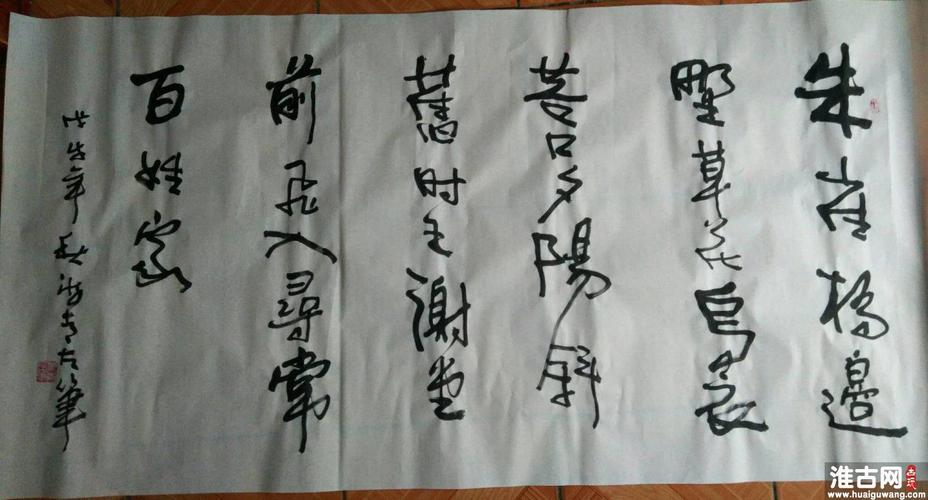 朱雀橋邊
野草花烏衣
巷口夕陽斜
舊时王謝堂
前飛入尋常
百姓家
戊戌年秋左筆
淮古网
www.huaiguwang.com